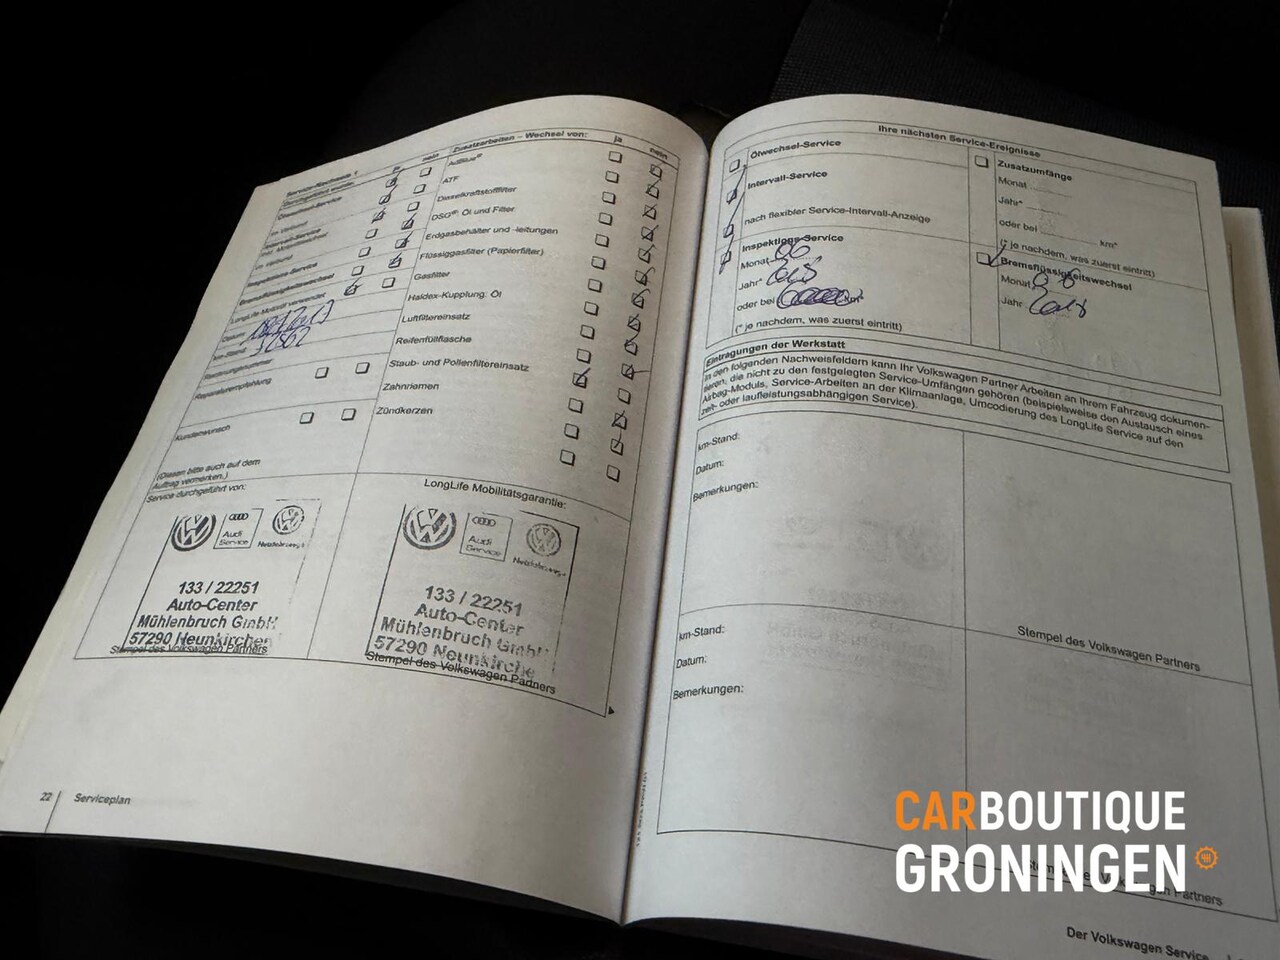 Service-Nachweis 1
Durchgeführt wurden:
ja
nein
Zusatzarbeiten – Wechsel von:
ja
nein
Ölwechsel-Service
im Verbund
Intervall-Service
inkl. Motorölwechsel
im Verbund
Inspektions-Service
Bremsflüssigkeitswechsel
LongLife Motoröl verwendet
Datum:
km-Stand:
Rechnungsnummer:
Reparaturempfehlung
Kundenwunsch
(Diesen bitte auch auf dem
Auftrag vermerken.)
AdBlue®
ATF
Dieselkraftstofffilter
DSG®: Öl und Filter
Erdgasbehälter und -leitungen
Flüssiggasfilter (Papierfilter)
Gasfilter
Haldex-Kupplung: Öl
Luftfiltereinsatz
Reifenfüllflasche
Staub- und Pollenfiltereinsatz
Zahnriemen
Zündkerzen
Service durchgeführt von:
Audi
Service
133 / 22251
Auto-Center
Mühlenbruch GmbH
57290 Neunkirchen
Stempel des Volkswagen Partners
LongLife Mobilitätsgarantie:
Audi
Service
133 / 22251
Auto-Center
Mühlenbruch GmbH
57290 Neunkirche
Stempel des Volkswagen Partners
22 Serviceplan
Ihre nächsten Service-Ereignisse
Ölwechsel-Service
Intervall-Service
nach flexibler Service-Intervall-Anzeige
Inspektions-Service
Monat 06
Jahr*
oder bei km*
(* je nachdem, was zuerst eintritt)
Zusatzumfänge
Monat
Jahr*
oder bei km*
(* je nachdem, was zuerst eintritt)
Bremsflüssigkeitswechsel
Monat 06
Jahr
Eintragungen der Werkstatt
In den folgenden Nachweisfeldern kann Ihr Volkswagen Partner Arbeiten an Ihrem Fahrzeug dokumen-
tieren, die nicht zu den festgelegten Service-Umfängen gehören (beispielsweise den Austausch eines
Airbag-Moduls, Service-Arbeiten an der Klimaanlage, Umcodierung des LongLife Service auf den
zeit- oder laufleistungsabhängigen Service).
km-Stand:
Datum:
Bemerkungen:
Stempel des Volkswagen Partners
km-Stand:
Datum:
Bemerkungen:
Partners
Der Volkswagen Service
CARBOUTIQUE
GRONINGEN